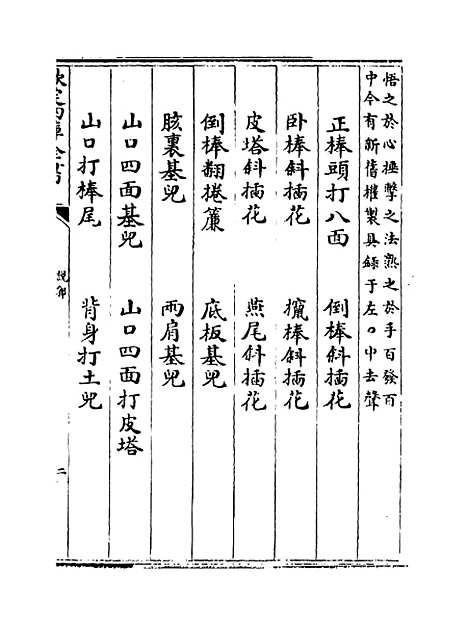 悟之於心極擊之法熟之於手百發百
中今有新舊權製具錄于左○中去聲
正棒頭打八面　倒棒斜插花
卧棒斜插花　攛棒斜插花
皮塔斜插花　燕尾斜插花
倒棒翻捲簾　底板基兒
胲裏基兒　兩肩基兒
山口四面基兒　山口四面打皮塔
山口打棒尾　背身打土兒
欽定四庫全書
說郛
二